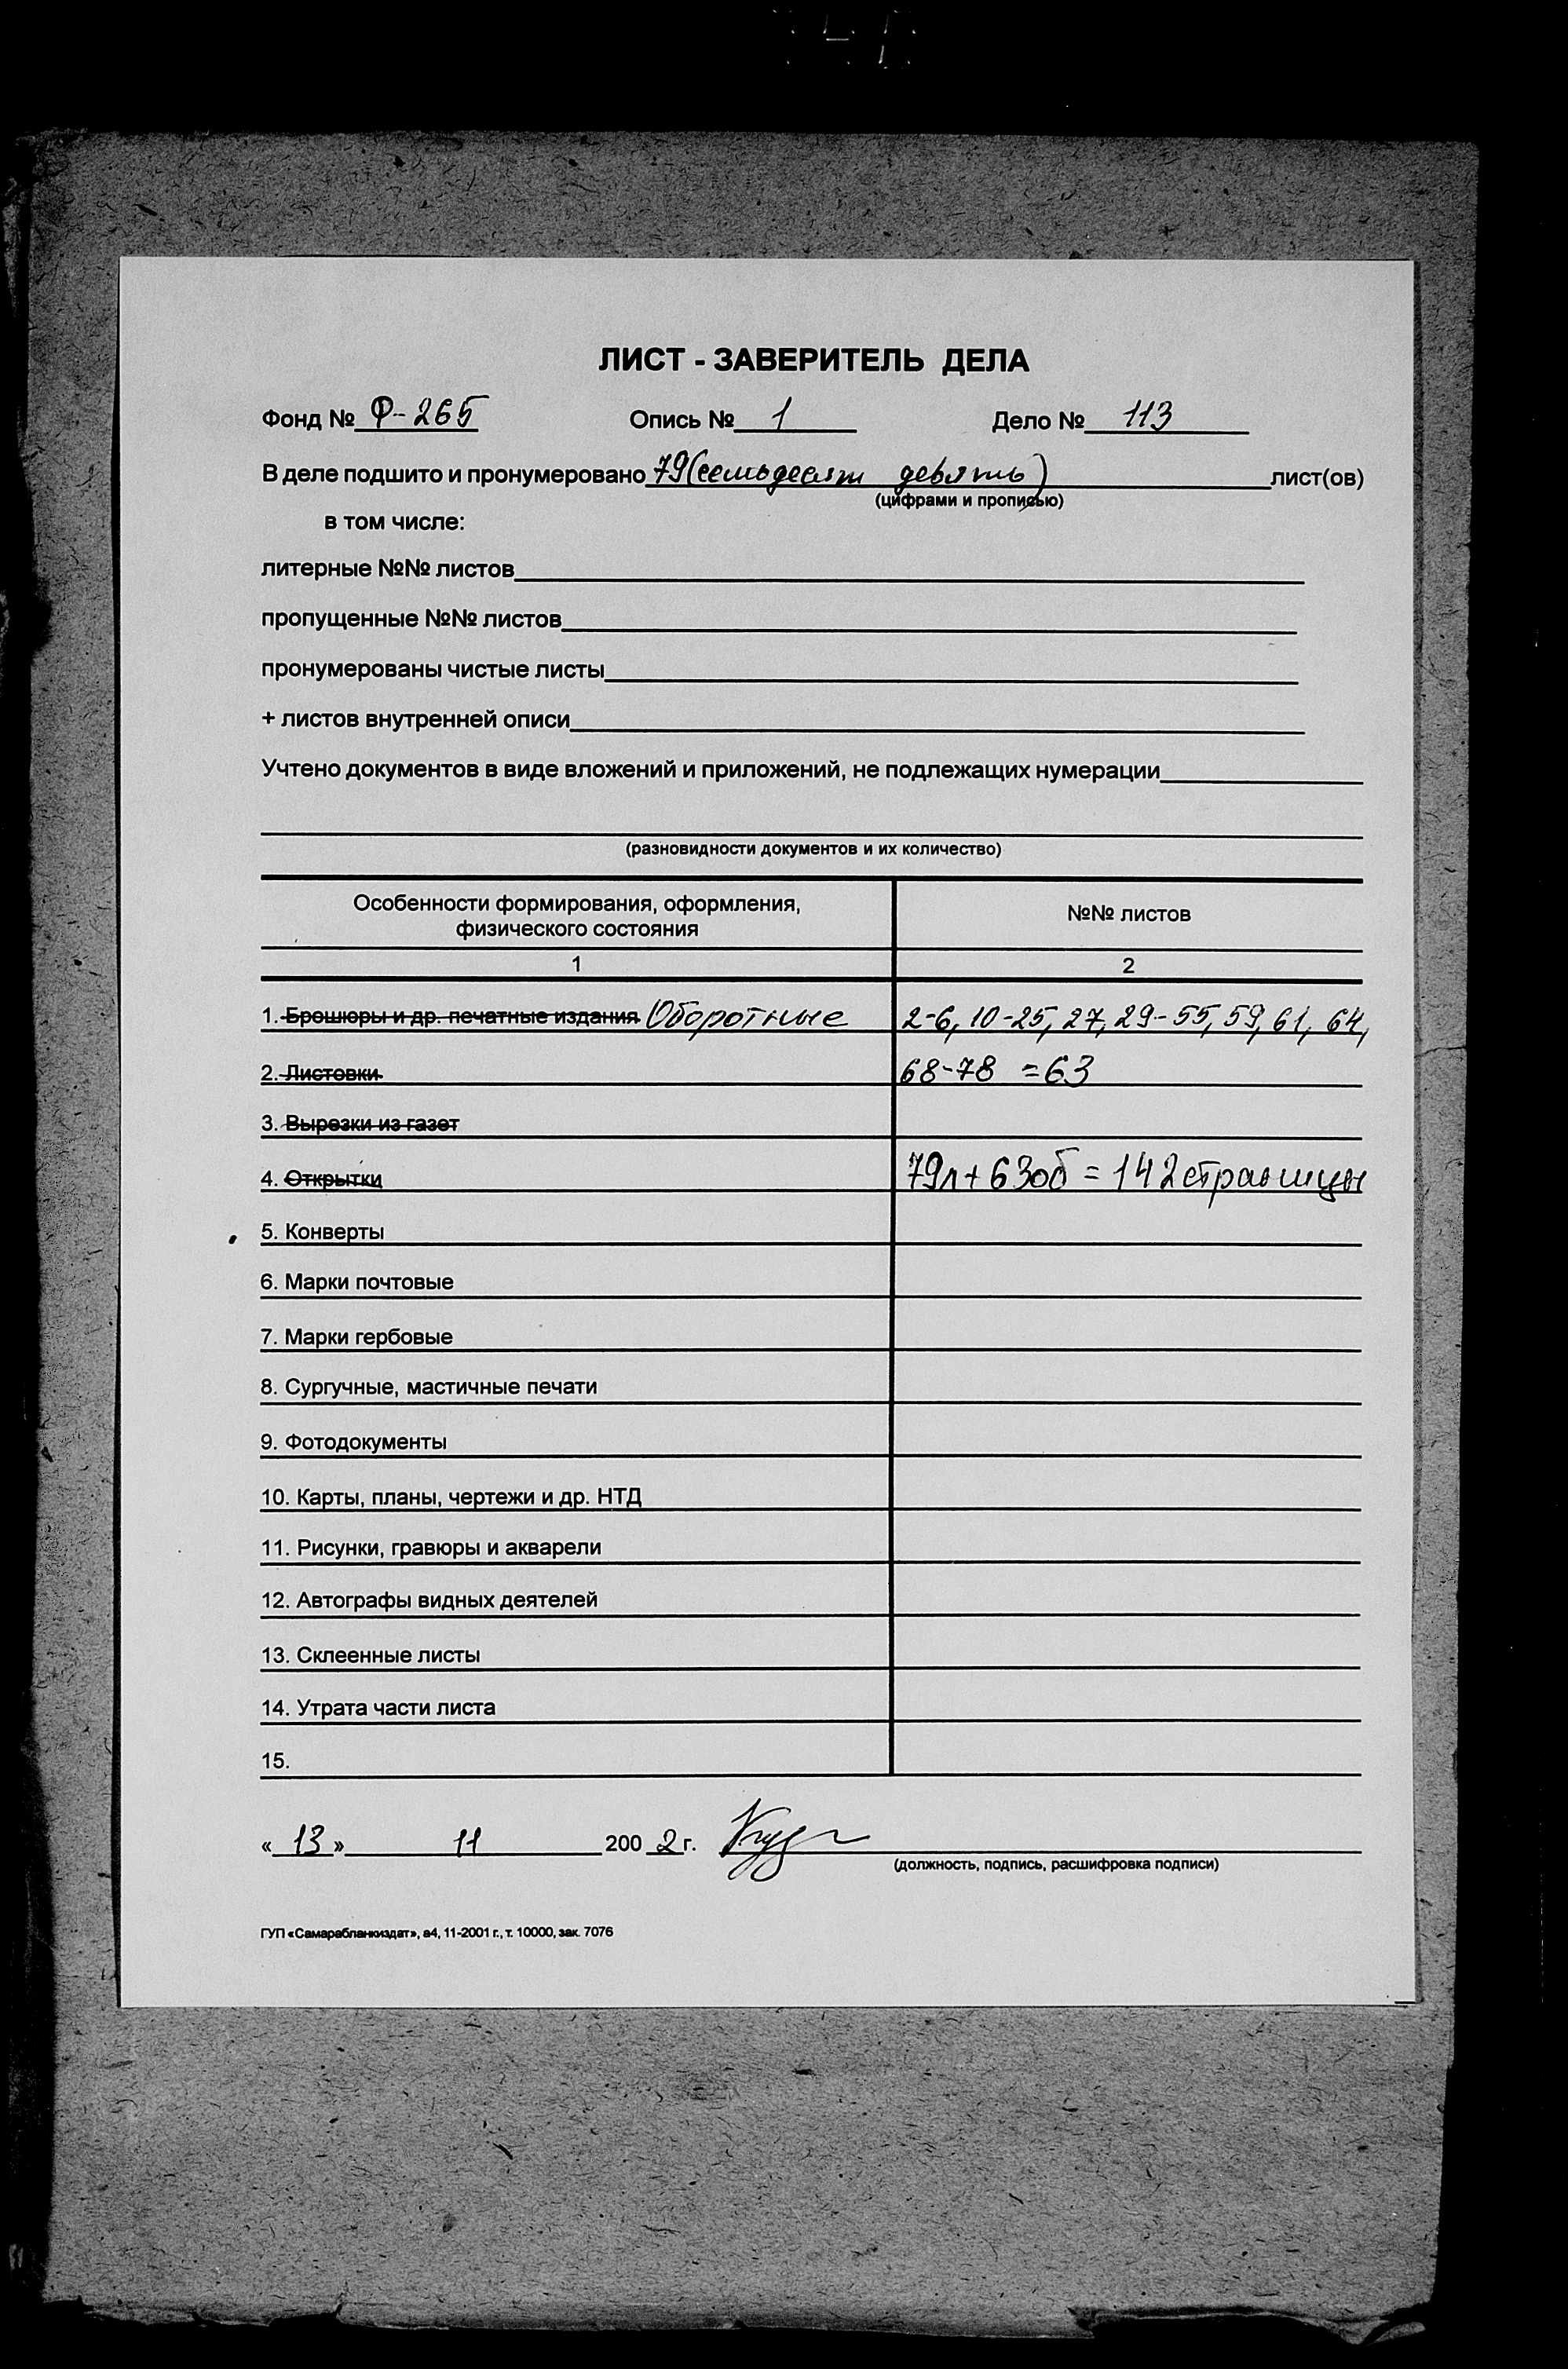 ЛИСТ - ЗАВЕРИТЕЛЬ ДЕЛА
Фонд № Ф-265 Опись № 1 Дело № 113
В деле подшито и пронумеровано 79 (семьдесят девять) лист(ов)
(цифрами и прописью)
в том числе:
литерные №№ листов
пропущенные №№ листов
пронумерованы чистые листы
+ листов внутренней описи
Учтено документов в виде вложений и приложений, не подлежащих нумерации
(разновидности документов и их количество)
Особенности формирования, оформления, №№ листов
физического состояния
1 2
1. Брошюры и др. печатные издания Оборотные 2-6, 10-25, 27, 29-55, 59, 61, 64,
2. Листовки 68-78 = 63
3. Вырезки из газет
4. Открытки 79л + 63об = 142 страницы
5. Конверты
6. Марки почтовые
7. Марки гербовые
8. Сургучные, мастичные печати
9. Фотодокументы
10. Карты, планы, чертежи и др. НТД
11. Рисунки, гравюры и акварели
12. Автографы видных деятелей
13. Склеенные листы
14. Утрата части листа
15.
« 13 » 11 200 2 г.
(должность, подпись, расшифровка подписи)
ГУП «Самарабланкиздат», а4, 11-2001 г., т. 10000, зак. 7076